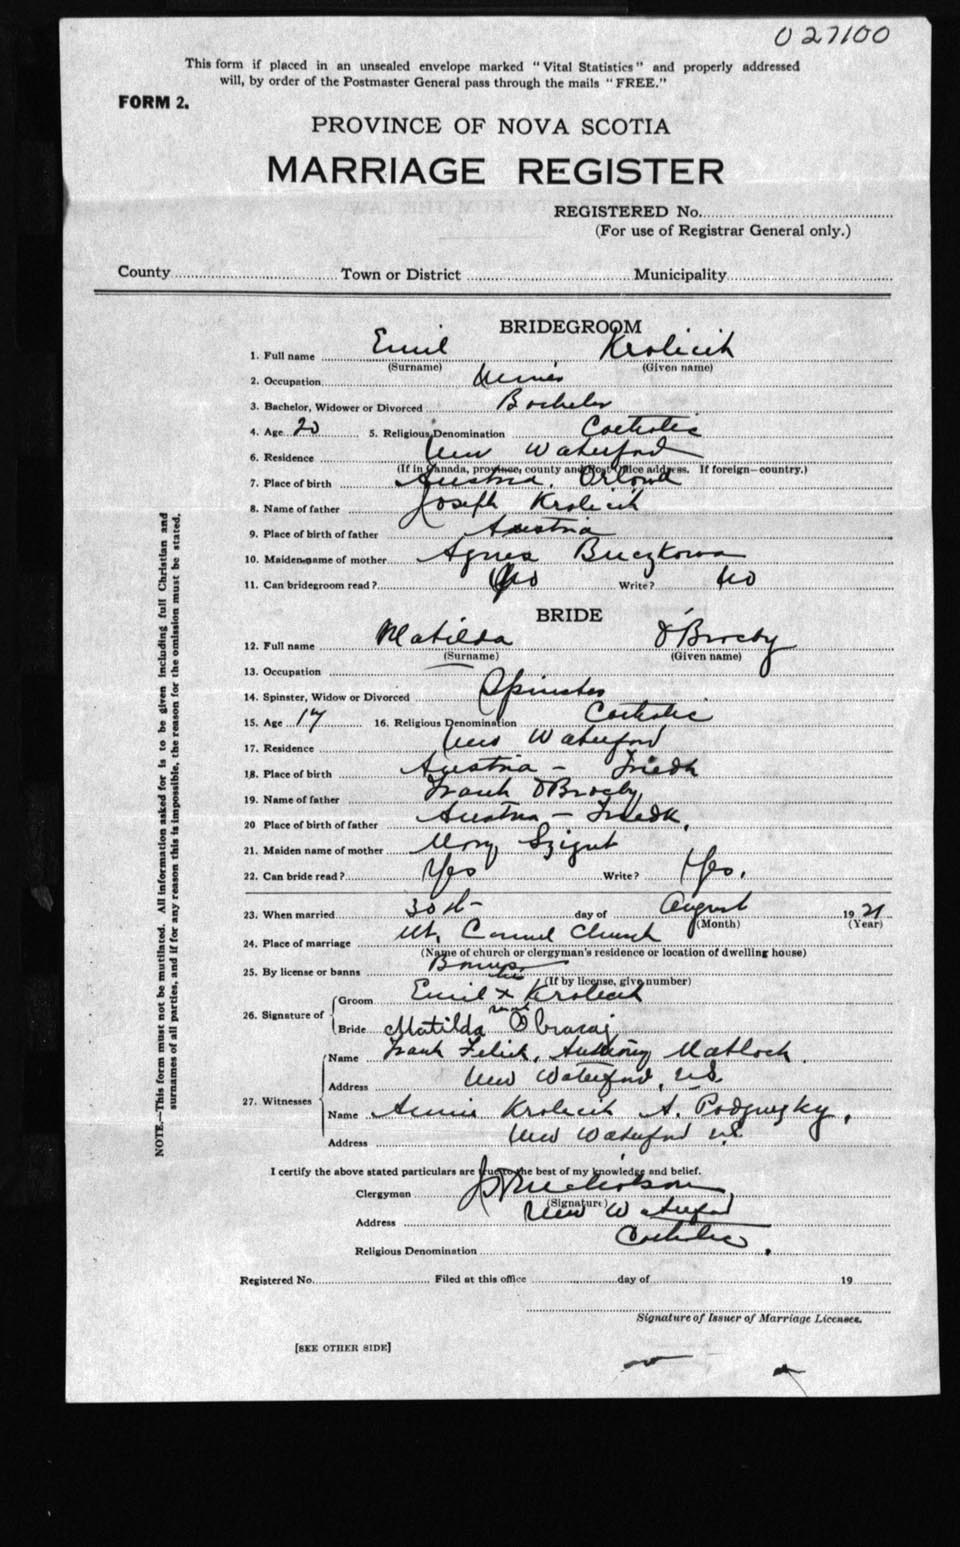 027100
This form if placed in an unsealed envelope marked "Vital Statistics" and properly addressed
will, by order of the Postmaster General pass through the mails "FREE."
FORM 2.
PROVINCE OF NOVA SCOTIA
MARRIAGE REGISTER
REGISTERED No.
(For use of Registrar General only.)
County Town or District Municipality
BRIDEGROOM
1. Full name Emil Krolicik
(Surname) (Given name)
2. Occupation
3. Bachelor, Widower or Divorced Bachelor
4. Age 20 5. Religious Denomination Catholic
6. Residence New Waterford
(If in Canada, province, county and Post Office address. If foreign—country.)
7. Place of birth Austria, Orlowa
8. Name of father Joseph Krolicik
9. Place of birth of father Austria
10. Maiden name of mother Agnes Buczkowa
11. Can bridegroom read? No Write? No
BRIDE
12. Full name Matilda O'Brocby
(Surname) (Given name)
13. Occupation
14. Spinster, Widow or Divorced Spinster
15. Age 17 16. Religious Denomination Catholic
17. Residence New Waterford
18. Place of birth Austria - Friedk
19. Name of father Frank O'Brocby
20 Place of birth of father Austria - Friedk.
21. Maiden name of mother Mary Szigut
22. Can bride read? Yes Write? Yes.
23. When married 30th day of August 1921
(Month) (Year)
24. Place of marriage Mt. Carmel Church
(Name of church or clergyman's residence or location of dwelling house)
25. By license or banns Banns
(If by license, give number)
26. Signature of Groom Emil x Krolicik
his mark
Bride Matilda Obracaj
27. Witnesses Name Frank Felick, Anthony Matloch.
Address New Waterford, N.S.
Name Annie Krolicik A. Podgursky.
Address New Waterford N.S.
I certify the above stated particulars are true to the best of my knowledge and belief.
Clergyman Nicholson
(Signature)
Address New Waterford
Religious Denomination Catholic
Registered No. Filed at this office day of 19
Signature of Issuer of Marriage Licenses.
[SEE OTHER SIDE]
NOTE.—This form must not be mutilated. All information asked for is to be given including full Christian and
surnames of all parties, and if for any reason this is impossible, the reason for the omission must be stated.